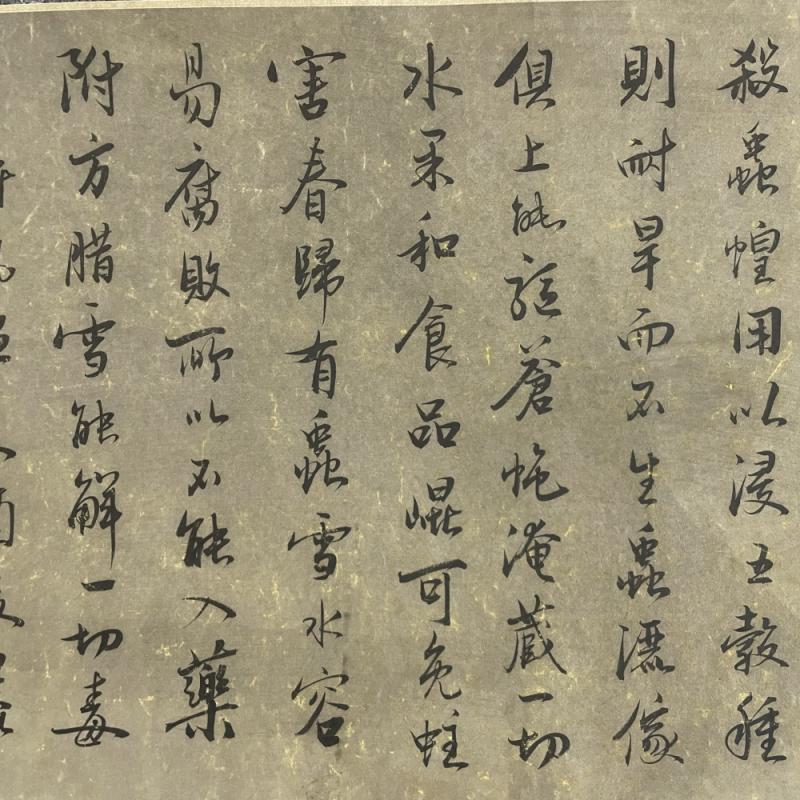 殺蟲蝗用以浸五穀種
則耐旱而不生蟲灑傢
俱上能驅蒼蚫淹蔵一切
水菓和食品崐可免蛀
害春歸有蟲雪水容
易腐敗所以不能入藥
附方腊雪能解一切毒